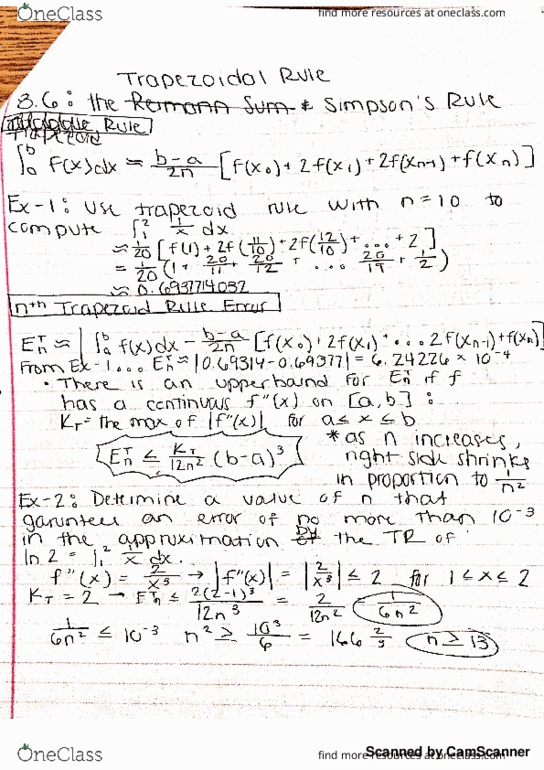 OneClass
find more resources at oneclass.com
Trapezoidal Rule
8.6: the Remann Sum & Simpson's Rule
Trapezoid Rule
∫ₐᵇ f(x)dx ≈ b-a/2n [f(x₀) + 2f(x₁) + 2f(xₙ₋₁) + f(xₙ)]
Ex-1: Use trapezoid rule with n=10 to
compute ∫₁² 1/x dx
≈ 1/20 [f(1) + 2f(11/10) + 2f(12/10) + ... + 2]
= 1/20 (1 + 20/11 + 20/12 + ... 20/19 + 1/2)
≈ 0.6937714032
nth Trapezoid Rule Error
Eₙᵀ ≈ |∫ₐᵇ f(x)dx - b-a/2n [f(x₀) + 2f(x₁) + ... 2f(xₙ₋₁) + f(xₙ)]
From Ex-1... Eₙᵀ ≈ |0.69314 - 0.69377| = 6.24226 × 10⁻⁴
• There is an upperbound for Eₙᵀ if f
has a continuous f"(x) on [a,b]:
K_T = the max of |f"(x)| for a ≤ x ≤ b
Eₙᵀ ≤ K_T/12n² (b-a)³
*as n increases,
right side shrinks
in proportion to 1/n²
Ex-2: Determine a value of n that
garuntees an error of no more than 10⁻³
in the approximation by the TR of
ln 2 = ∫₁² 1/x dx.
f"(x) = 2/x³ → |f"(x)| = |2/x³| ≤ 2 for 1 ≤ x ≤ 2
K_T = 2 → Eₙᵀ ≤ 2(2-1)³/12n³ = 2/12n² 1/6n²
1/6n² ≤ 10⁻³ n² ≥ 10³/6 = 166 2/3 n ≥ 13
OneClass
find more resources at oneclass.com
Scanned by CamScanner